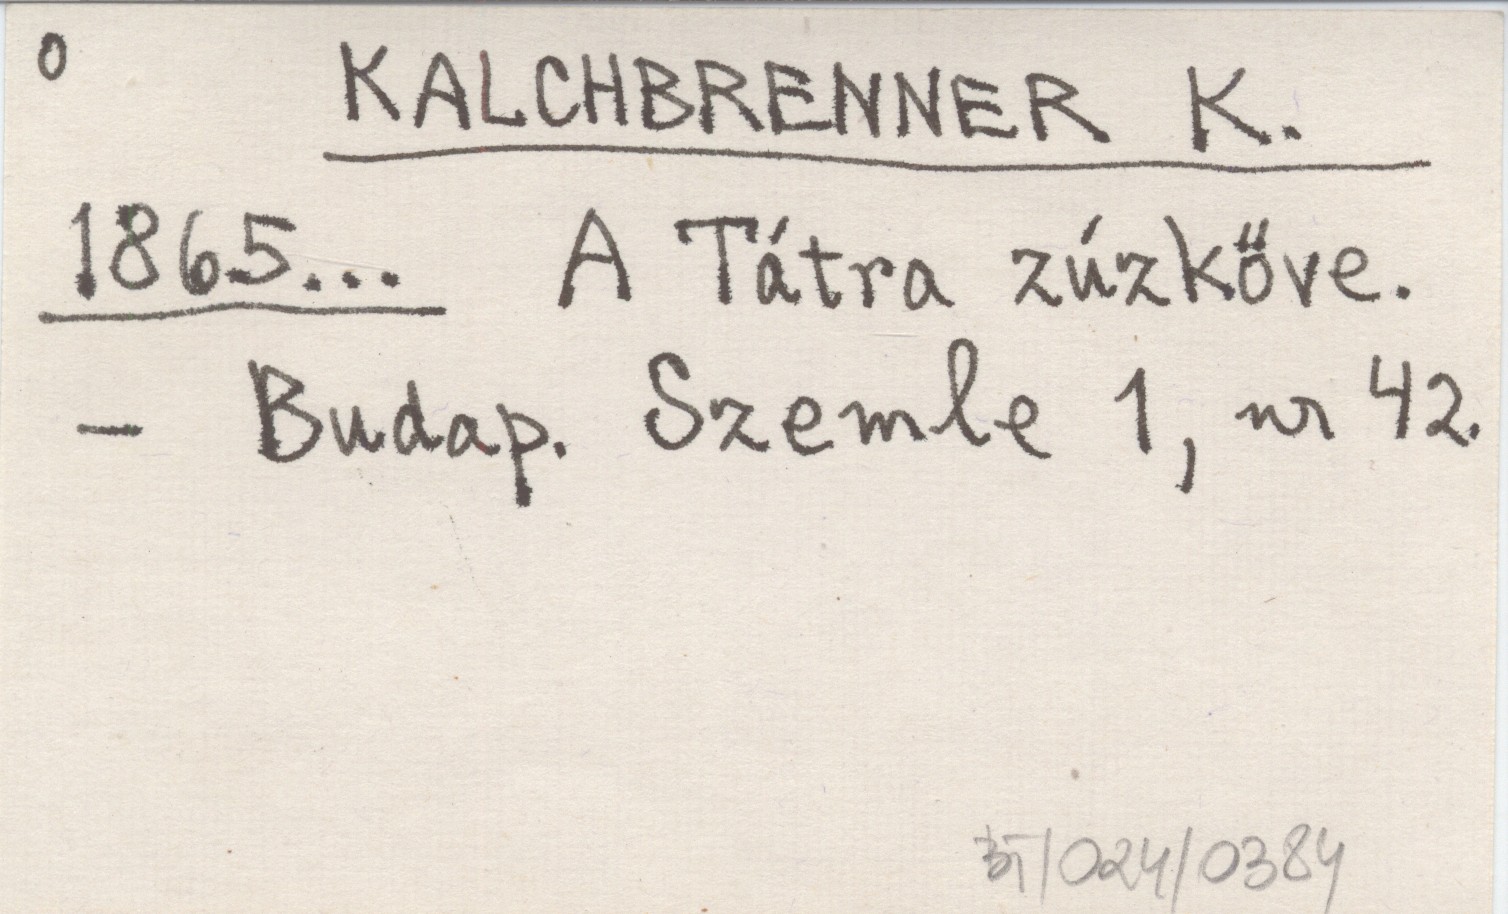 0
KALCHBRENNER K.
1865... A Tátra zúzkőve.
- Budap. Szemle 1, nr 42.
BT/024/0384